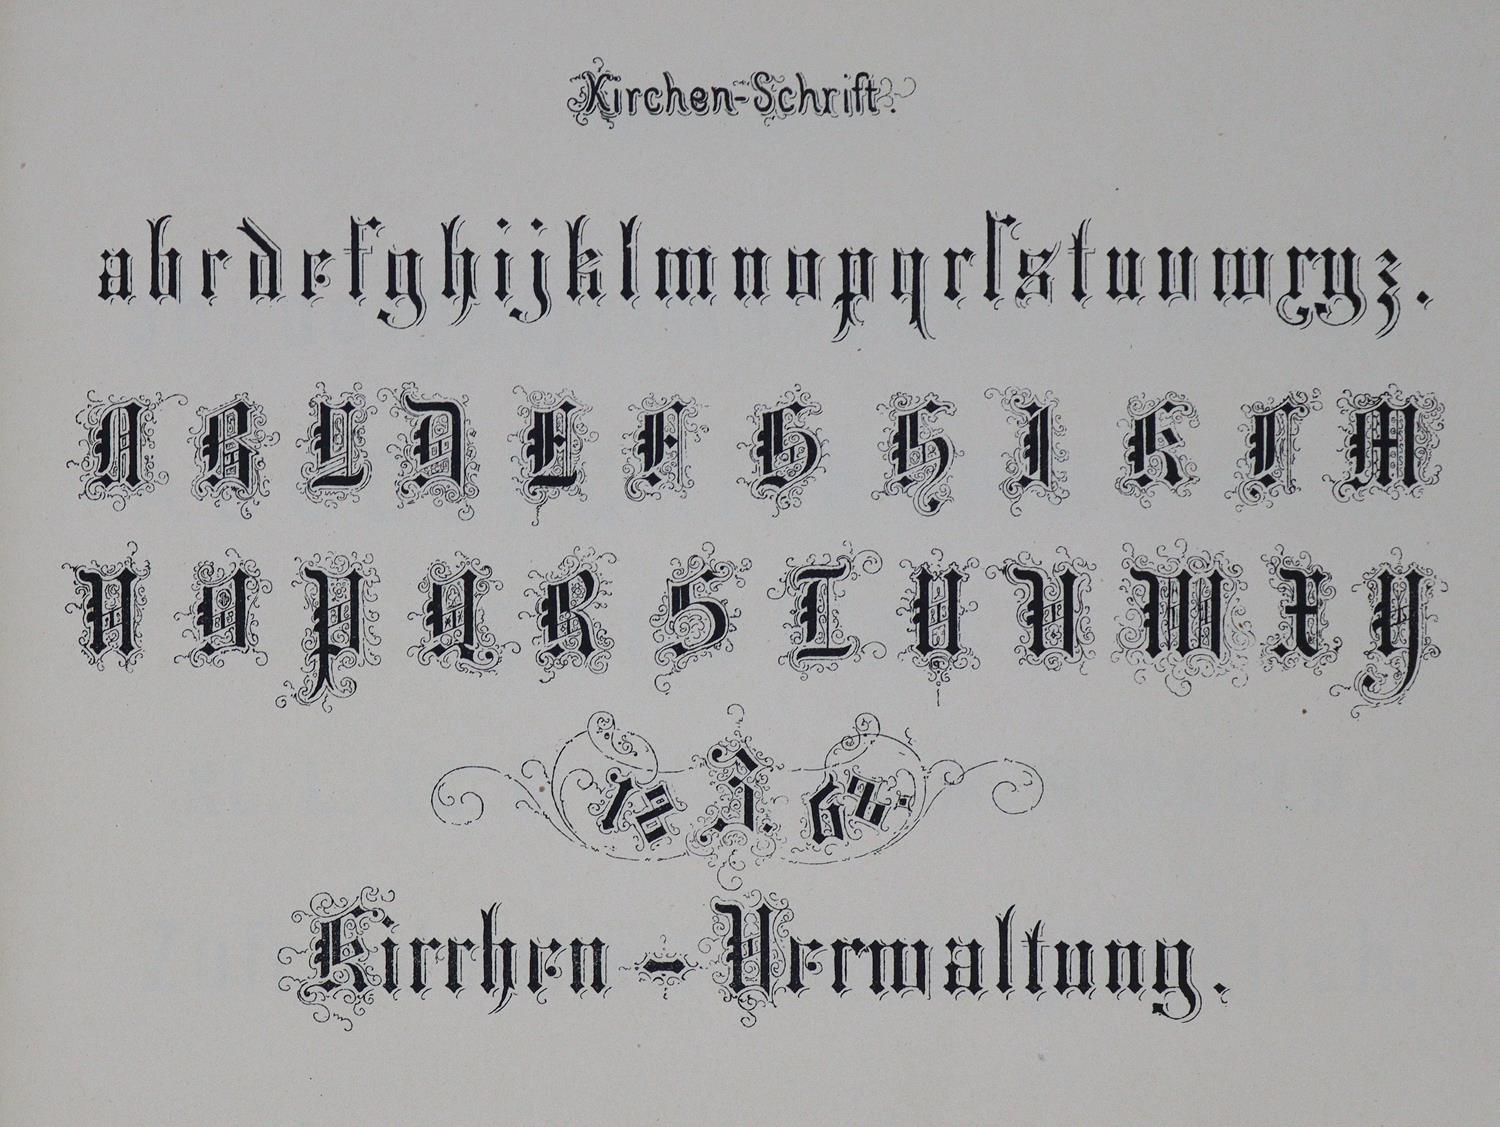 Kirchen-Schrift.
abcdefghijklmnopqrſstuvwxyz.
A B C D E F G H I K L M
N O P Q R S T U V W X Y
12 3. 678.
Kirchen - Verwaltung.